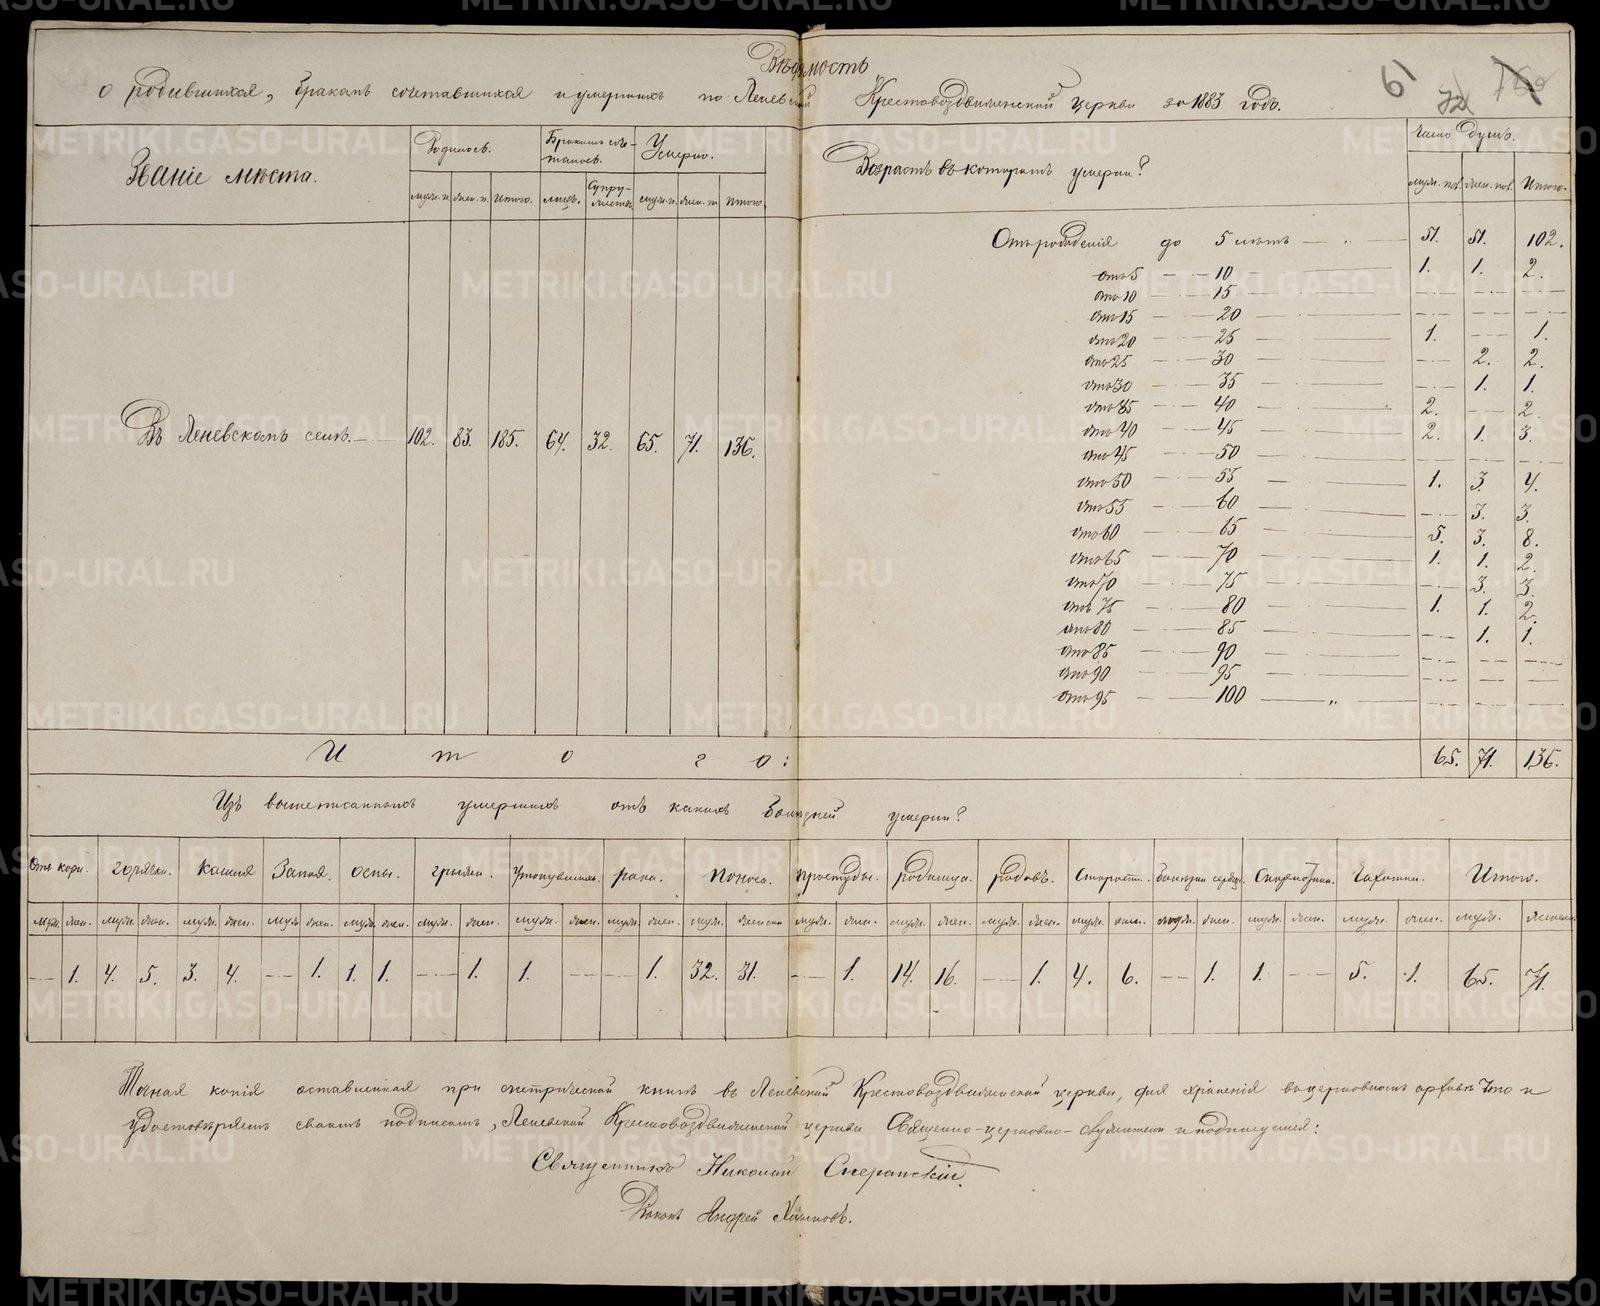 Вѣдомость
о родившихся, бракомъ сочетавшихся и умершихъ по Леневской Крестовоздвиженской церкви за 1883 годъ.
61
72
Званіе мѣста.
Родилось.
Бракомъ соче-
талось.
Умерло.
муж. п. жен. п. Итого. лицъ. Супру-
жествъ. муж. п. жен. п. Итого.
Въ Леневскомъ селѣ. 102. 83. 185. 64. 32. 65. 71. 136.
Возрастъ въ которомъ умерли?
Число душъ.
муж. пол. жен. пол. Итого.
Отъ рожденія до 5 лѣтъ — „ — 51. 51. 102.
отъ 5 — 10 — 1. 1. 2.
отъ 10 — 15 — — — —
отъ 15 — 20 — — — —
отъ 20 — 25 — 1. — 1.
отъ 25 — 30 — — 2. 2.
отъ 30 — 35 — — 1. 1.
отъ 35 — 40 — 2. — 2.
отъ 40 — 45 — 2. 1. 3.
отъ 45 — 50 — — — —
отъ 50 — 55 — 1. 3. 4.
отъ 55 — 60 — — 3. 3.
отъ 60 — 65 — 5. 3. 8.
отъ 65 — 70 — 1. 1. 2.
отъ 70 — 75 — — 3. 3.
отъ 75 — 80 — 1. 1. 2.
отъ 80 — 85 — — 1. 1.
отъ 85 — 90 — — — —
отъ 90 — 95 — — — —
отъ 95 — 100 — „ — — — —
Итого: 65. 71. 136.
Изъ вышеписанныхъ умершихъ отъ какихъ болѣзней умерли?
Отъ кори. горячки. Кашля Запоя. оспы. грыжи. утонувшихъ. рака. Поноса. простуды. родимца. родовъ. Старости. болѣзни сердца. Скарлатины. Чахотки. Итого.
муж. жен. муж. жен. муж. жен. муж. жен. муж. жен. муж. жен. муж. жен. муж. жен. муж. жен. муж. жен. муж. жен. муж. жен. муж. жен. муж. жен. муж. жен. муж. жен. муж. женска.
— 1. 4. 5. 3. 4. — 1. 1. 1. — 1. 1. — — 1. 32. 31. — 1. 14. 16. — 1. 4. 6. — 1. 1. — 5. 1. 65. 71.
Точная копія оставленная при метрической книгѣ въ Леневской Крестовоздвиженской церкви, для храненія въ церковномъ архивѣ что и
удостовѣряемъ своимъ подписомъ, Леневской Крестовоздвиженской церкви Священно-церковно-служители и подписуемся:
Священникъ Николай Сперанскій.
Дьяконъ Андрей
METRIKI.GASO-URAL.RU